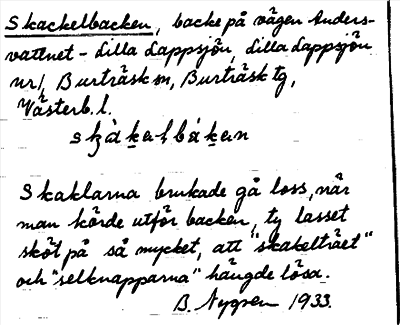 Skackelbacken, backe på vägen Anders-
vattnet - Lilla Lappsjön, Lilla Lappsjön
nr 1, Burträsk sn, Burträsk tg,
Västerb. l.
Skaklarna brukade gå loss, när
man körde utför backen, ty lasset
sköt på så mycket, att "skakelträet"
och "selknapparna" hängde lösa.
B. Nygren 1933.